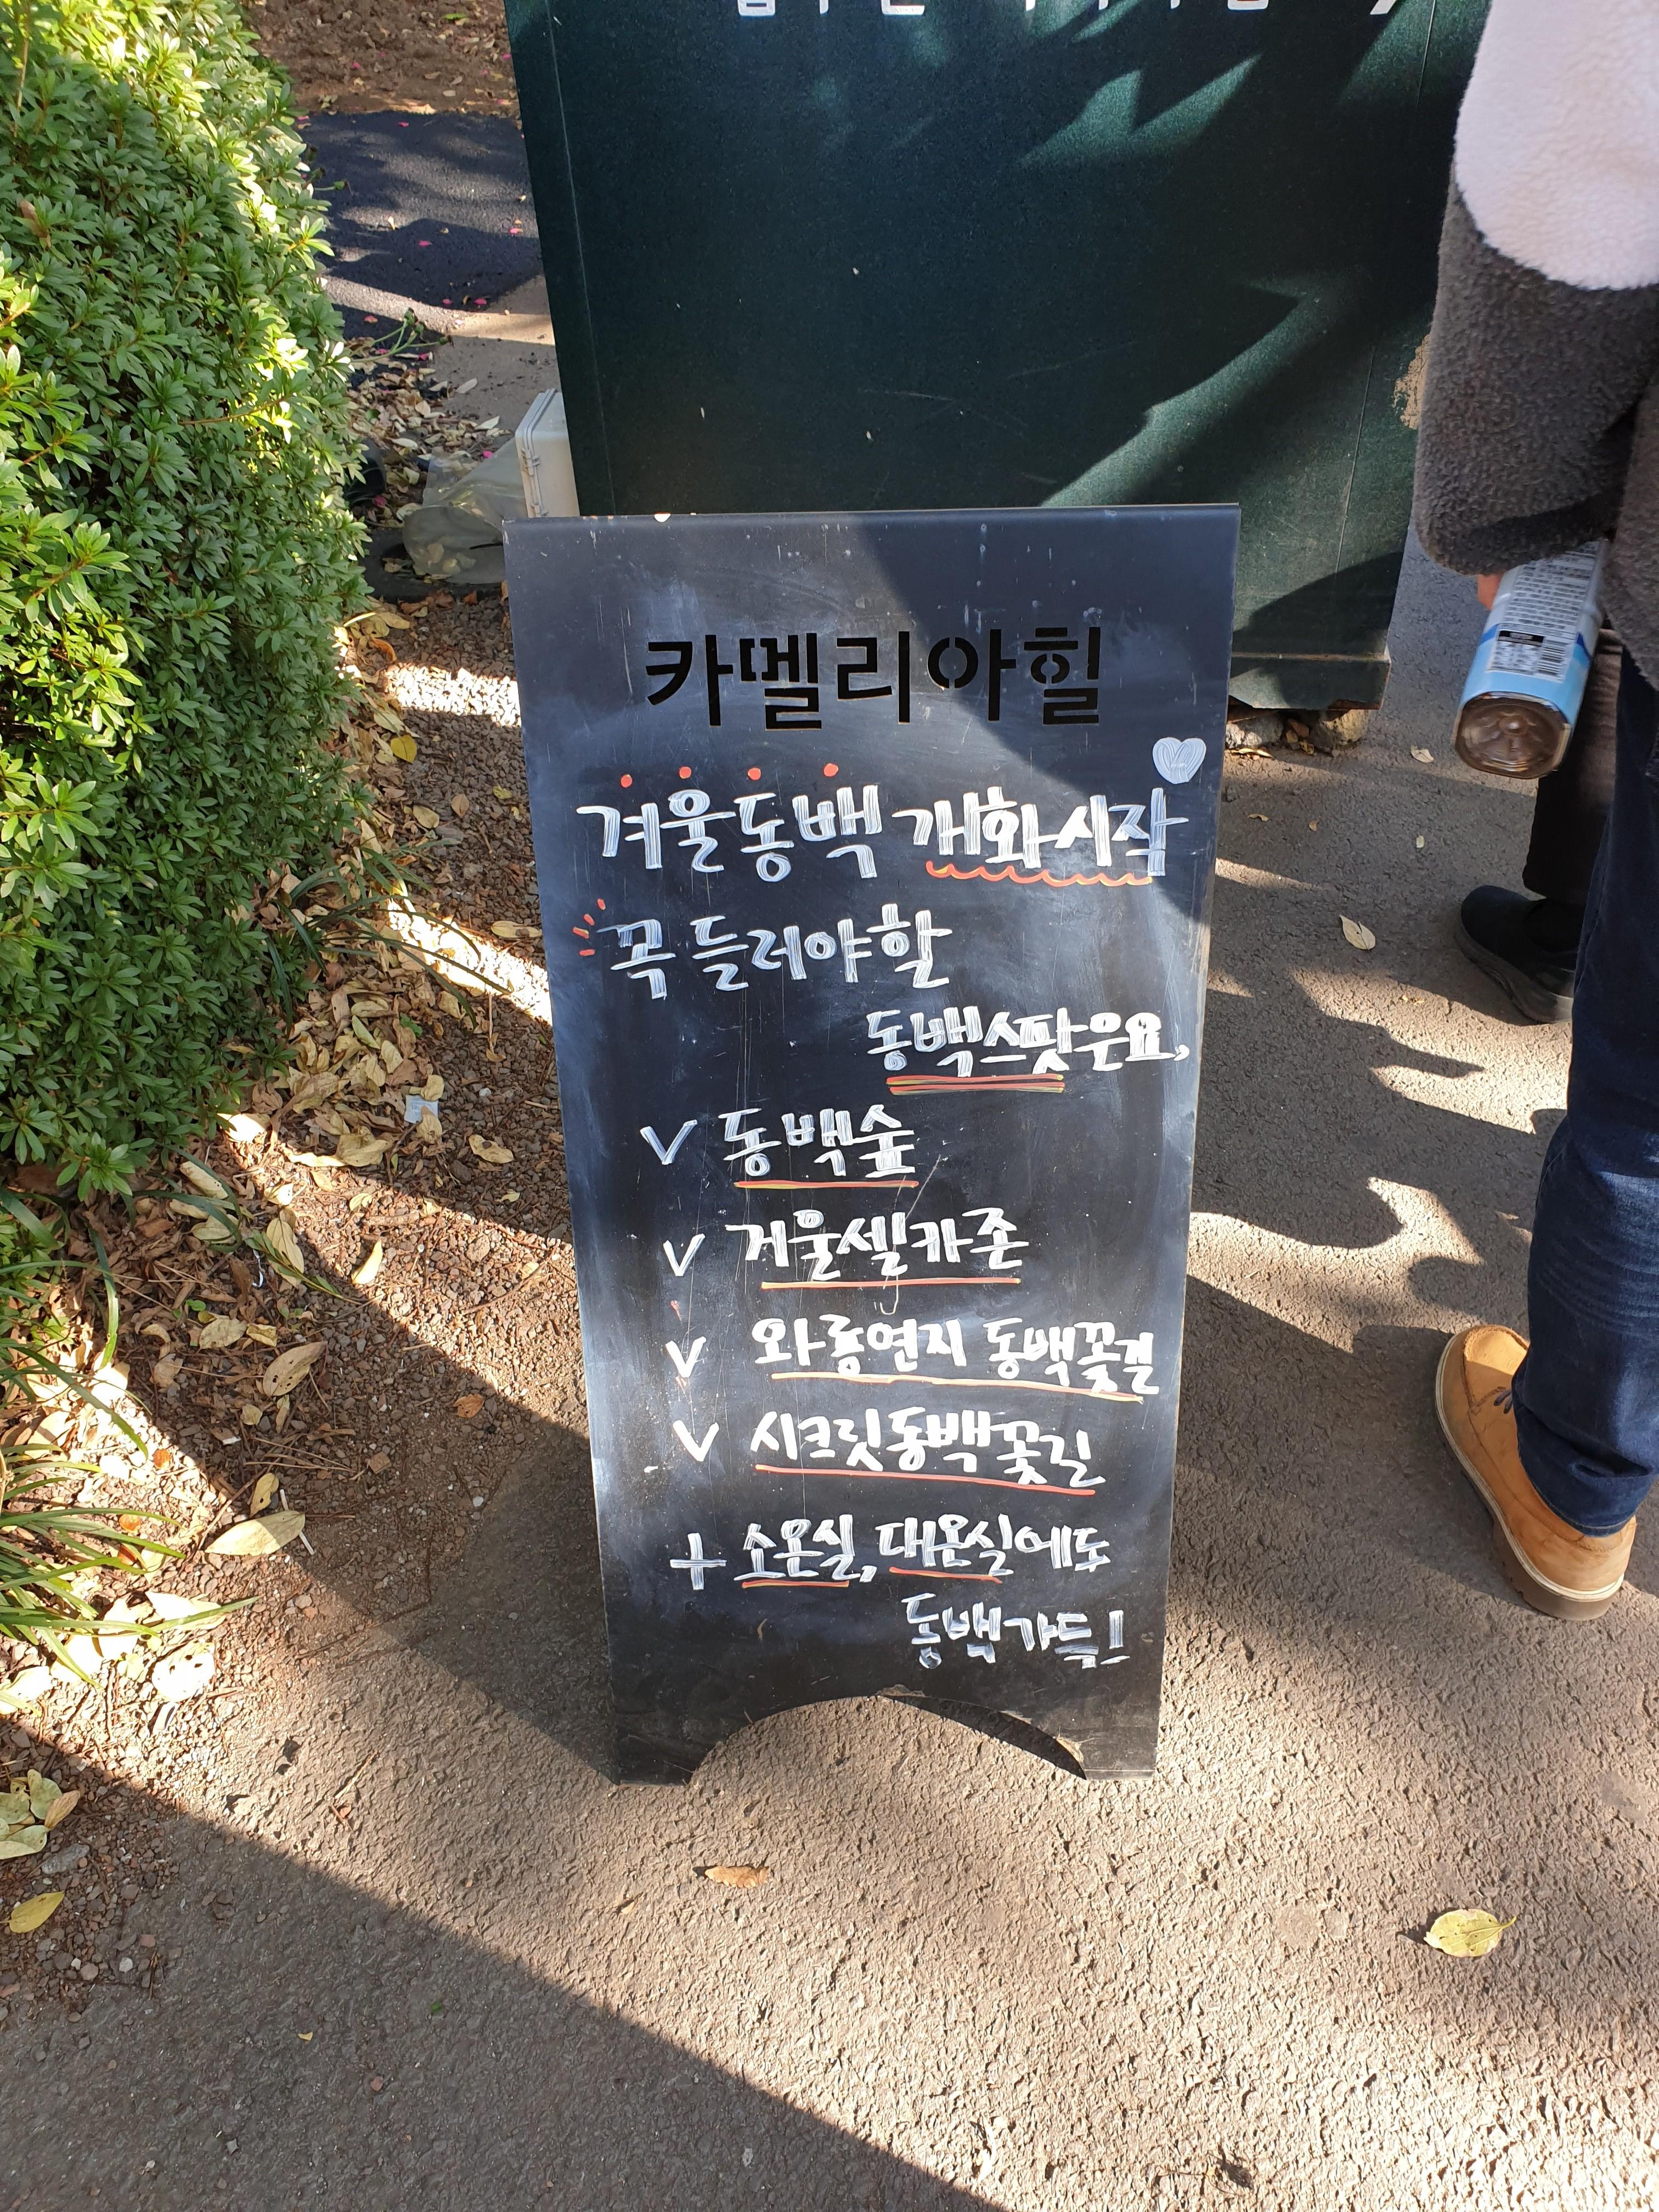 카멜리아힐
겨울동백 개화시작
꼭 들러야할
동백스팟은요,
V 동백숲
V 거울셀카존
V 와룡연지 동백꽃길
V 시크릿동백꽃길
+ 소온실, 대온실에도
동백가득!